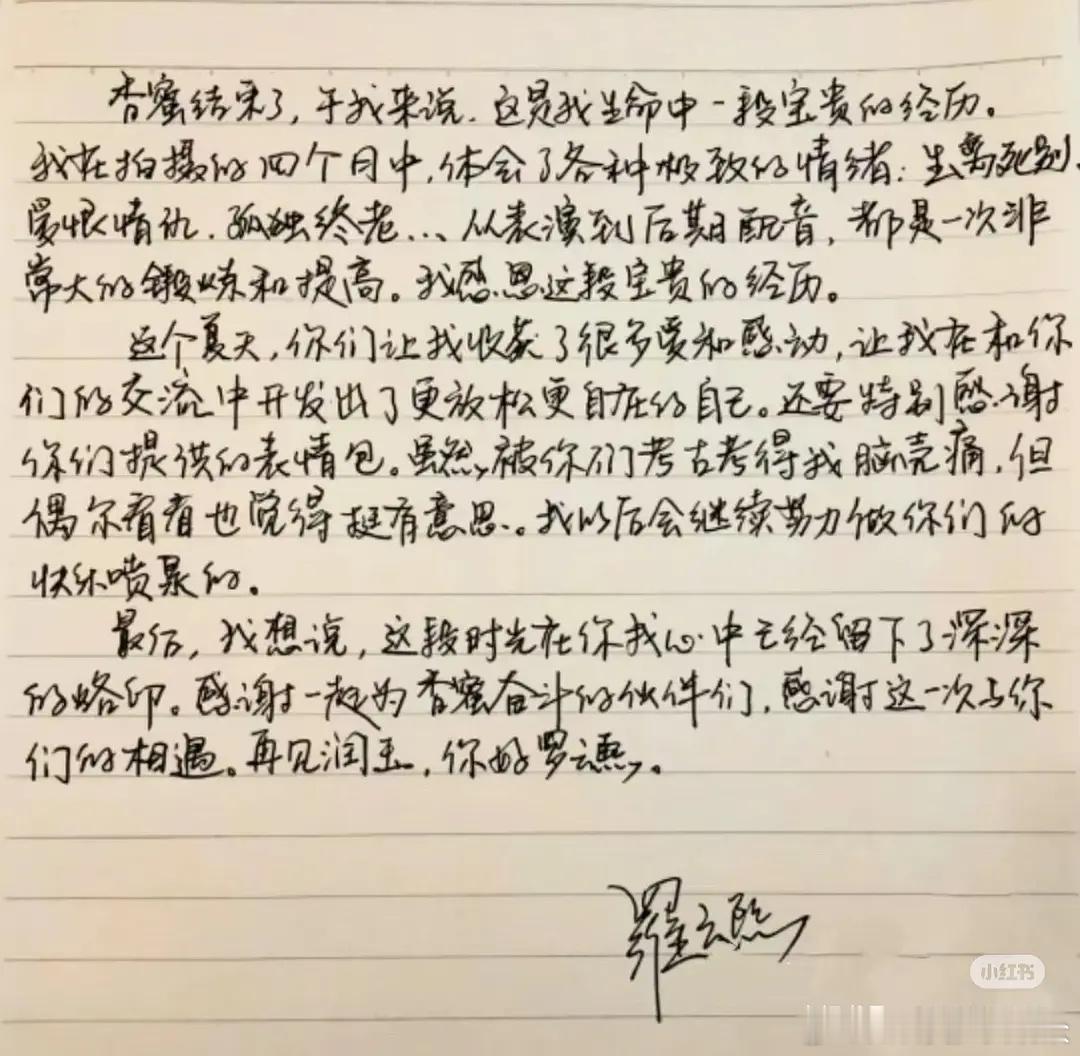 香蜜结束了，于我来说，这是我生命中一段宝贵的经历。
我在拍摄的四个月中，体会了各种极致的情绪：生离死别、
爱恨情仇、孤独终老...从表演到后期配音，都是一次非
常大的锻炼和提高。我感恩这段宝贵的经历。
这个夏天，你们让我收获了很多爱和感动，让我在和你
们的交流中开发出了更放松更自在的自己。还要特别感谢
你们提供的表情包。虽然被你们考古考得我脑壳痛，但
偶尔看看也觉得挺有意思。我以后会继续努力做你们的
快乐喷泉的。
最后，我想说，这段时光在你我心中已经留下了深深
的烙印。感谢一起为香蜜奋斗的伙伴们，感谢这一次与你
们的相遇。再见润玉，你好罗云熙。
羅云熙
小红书